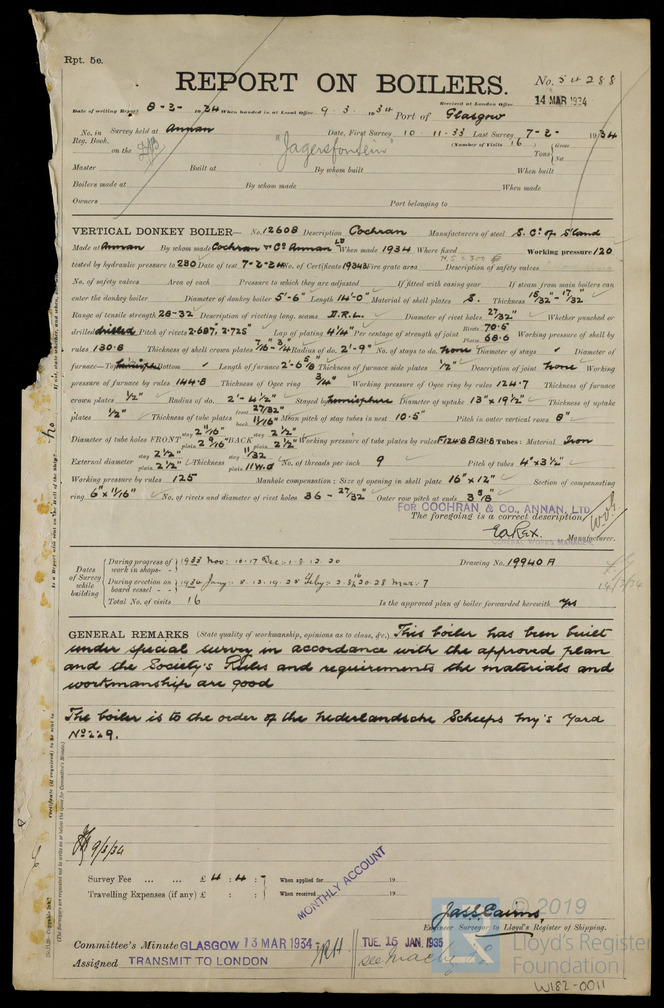 Rpt. 5c.
REPORT ON BOILERS.
No. 54288
Received at London Office 14 MAR 1934
Date of writing Report 8-3-1934 When handed in at Local Office 9.3.1934 Port of Glasgow
No. in Reg. Book. Survey held at Annan Date, First Survey 10-11-33 Last Survey 7-3-1934
on the "Jagersfontein" (Number of Visits 16) Tons { Gross Net
Master Built at By whom built When built
Boilers made at By whom made When made
Owners Port belonging to
VERTICAL DONKEY BOILER— No. 12608 Description Cochran Manufacturers of steel S. Co of S'land
Made at Annan By whom made Cochran & Co Annan Ltd When made 1934 Where fixed Working pressure 120
tested by hydraulic pressure to 230 Date of test 7-2-34 No. of Certificate 19343 Fire grate area Description of safety valves
No. of safety valves Area of each Pressure to which they are adjusted If fitted with easing gear If steam from main boilers can
enter the donkey boiler Diameter of donkey boiler 5'-6" Length 14'-0" Material of shell plates S. Thickness 15/32"-17/32"
Range of tensile strength 28-32 Description of riveting long. seams D.R.L. Diameter of rivet holes 27/32" Whether punched or
drilled drilled Pitch of rivets 2.687", 2.725" Lap of plating 4 1/4" Per centage of strength of joint Rivets 70.5 Plate 68.6 Working pressure of shell by
rules 130.8 Thickness of shell crown plates 7/16"-3/4" Radius of do. 2'-9" No. of stays to do. None Diameter of stays ✓ Diameter of
furnace—Top hemisphere Bottom ✓ Length of furnace 2'-6 5/8" Thickness of furnace side plates 1/2" Description of joint None Working
pressure of furnace by rules 144.8 Thickness of Ogee ring 3/4" Working pressure of Ogee ring by rules 124.7 Thickness of furnace
crown plates 1/2" Radius of do. 2'-4 1/2" Stayed by hemisphere Diameter of uptake 13" x 19 1/2" Thickness of uptake
plates 1/2" Thickness of tube plates front 27/32" back 11/16" Mean pitch of stay tubes in nest 10.5" Pitch in outer vertical rows 8"
Diameter of tube holes FRONT stay 2 11/16" plain 2 9/16" BACK stay 2 1/2" plain 2 1/2" Working pressure of tube plates by rules F124.8 B131.8 Tubes: Material Iron
External diameter stay 2 1/2" plain 2 1/2" Thickness stay 11/32 plain 11 W.G No. of threads per inch 9 Pitch of tubes 4" x 3 1/2"
Working pressure by rules 125 Manhole compensation: Size of opening in shell plate 16" x 12" Section of compensating
ring 6" x 11/16" No. of rivets and diameter of rivet holes 36 - 27/32" Outer row pitch at ends 3 5/8"
FOR COCHRAN & CO., ANNAN, LTD
The foregoing is a correct description,
Manufacturer.
GENERAL WORKS MANAGER
Dates of Survey while building
During progress of work in shops - - 1933 Nov: 10.17 Dec: 1.8.12.20 Drawing No. 19940 A
During erection on board vessel - - 1934 Jany: 8.12.19.25 Feby: 2.8.16.20.28 Mar: 7
Total No. of visits 16 Is the approved plan of boiler forwarded herewith Yes
GENERAL REMARKS (State quality of workmanship, opinions as to class, &c.) This boiler has been built
under special survey in accordance with the approved plan
and the Society's Rules and requirements the materials and
workmanship are good
The boiler is to the order of the Nederlandsche Scheeps My's Yard
No 229.
9/3/34
Survey Fee ... ... £ 4 : 4 : - When applied for 19
Travelling Expenses (if any) £ : : When received 19
MONTHLY ACCOUNT
Jas S Cairns.
Engineer Surveyor to Lloyd's Register of Shipping.
Committee's Minute GLASGOW 13 MAR 1934 TUE. 15 JAN. 1935
Assigned TRANSMIT TO LONDON
© 2019
Lloyd's Register
Foundation
W182-0011